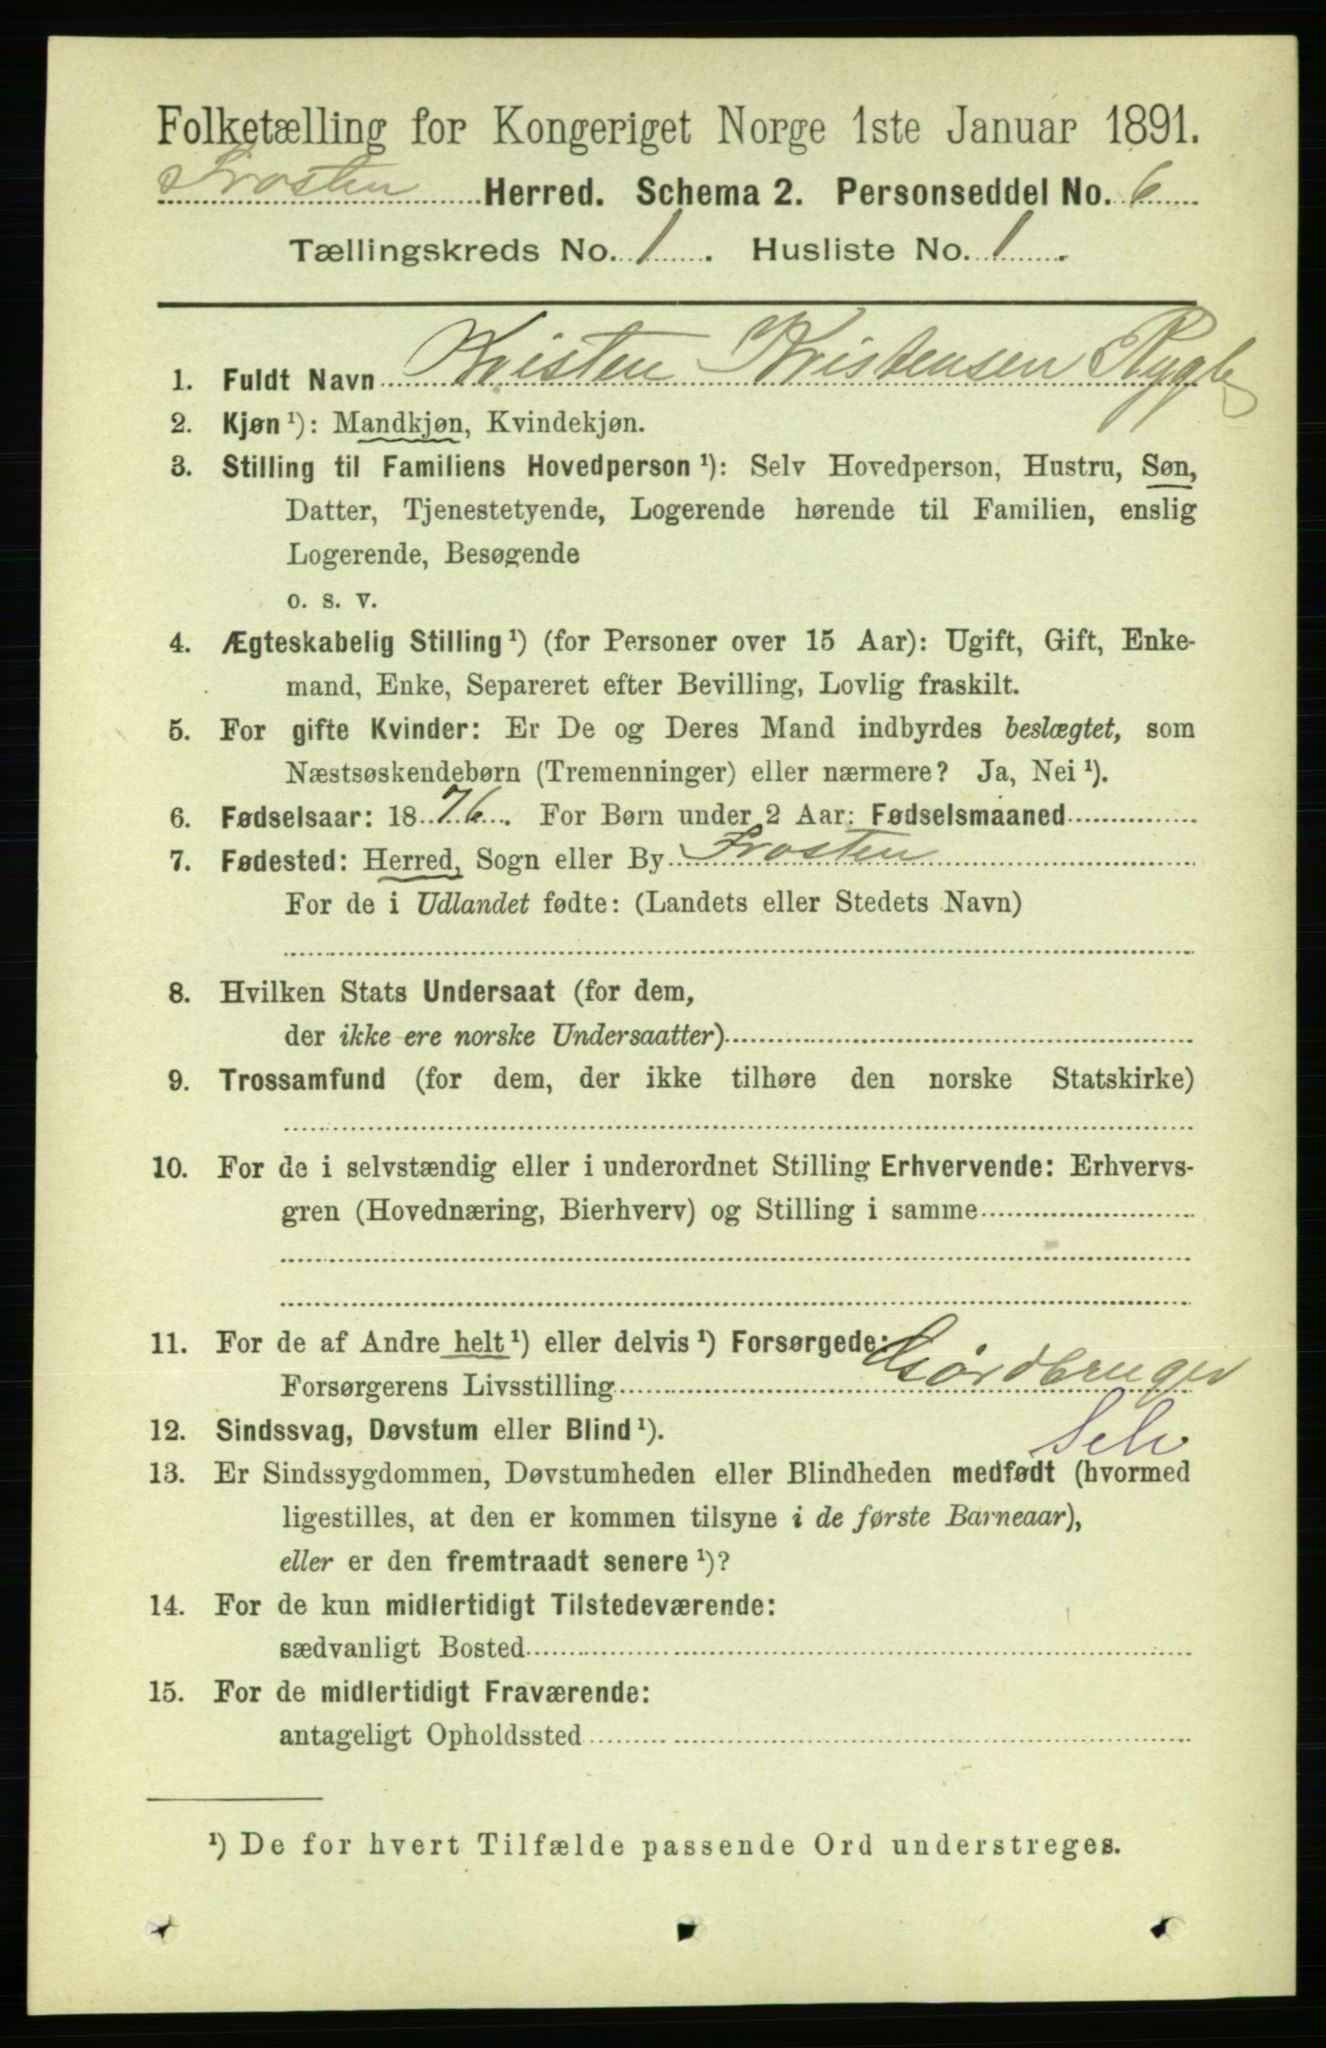 Folketælling for Kongeriget Norge 1ste Januar 1891.
Frosten Herred. Schema 2. Personseddel No. 6
Tællingskreds No. 1. Husliste No. 1.
1. Fuldt Navn Kristen Kristensen Rygh
2. Kjøn ¹): Mandkjøn, Kvindekjøn.
3. Stilling til Familiens Hovedperson ¹): Selv Hovedperson, Hustru, Søn,
Datter, Tjenestetyende, Logerende hørende til Familien, enslig
Logerende, Besøgende
o. s. v.
4. Ægteskabelig Stilling ¹) (for Personer over 15 Aar): Ugift, Gift, Enke-
mand, Enke, Separeret efter Bevilling, Lovlig fraskilt.
5. For gifte Kvinder: Er De og Deres Mand indbyrdes beslægtet, som
Næstsøskendebørn (Tremenninger) eller nærmere? Ja, Nei ¹).
6. Fødselsaar: 1876. For Børn under 2 Aar: Fødselsmaaned
7. Fødested: Herred, Sogn eller By Frosten
For de i Udlandet fødte: (Landets eller Stedets Navn)
8. Hvilken Stats Undersaat (for dem,
der ikke ere norske Undersaatter)
9. Trossamfund (for dem, der ikke tilhøre den norske Statskirke)
10. For de i selvstændig eller i underordnet Stilling Erhvervende: Erhvervs-
gren (Hovednæring, Bierhverv) og Stilling i samme
11. For de af Andre helt ¹) eller delvis ¹) Forsørgede:
Forsørgerens Livsstilling Gårdbruger
12. Sindssvag, Døvstum eller Blind ¹). Selv
13. Er Sindssygdommen, Døvstumheden eller Blindheden medfødt (hvormed
ligestilles, at den er kommen tilsyne i de første Barneaar),
eller er den fremtraadt senere ¹)?
14. For de kun midlertidigt Tilstedeværende:
sædvanligt Bosted
15. For de midlertidigt Fraværende:
antageligt Opholdssted
¹) De for hvert Tilfælde passende Ord understreges.